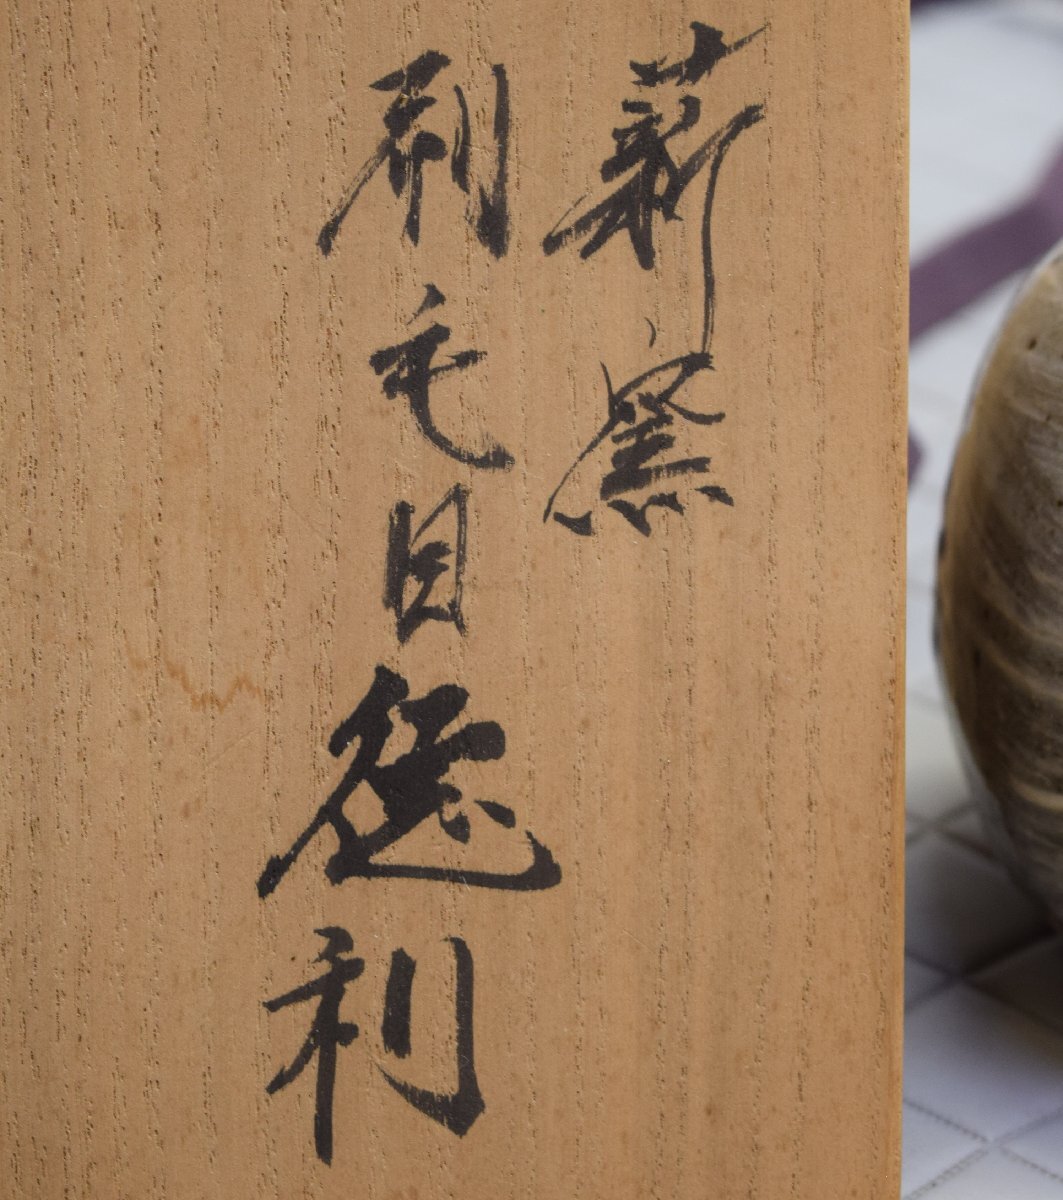 薪窯
刷毛目徳利